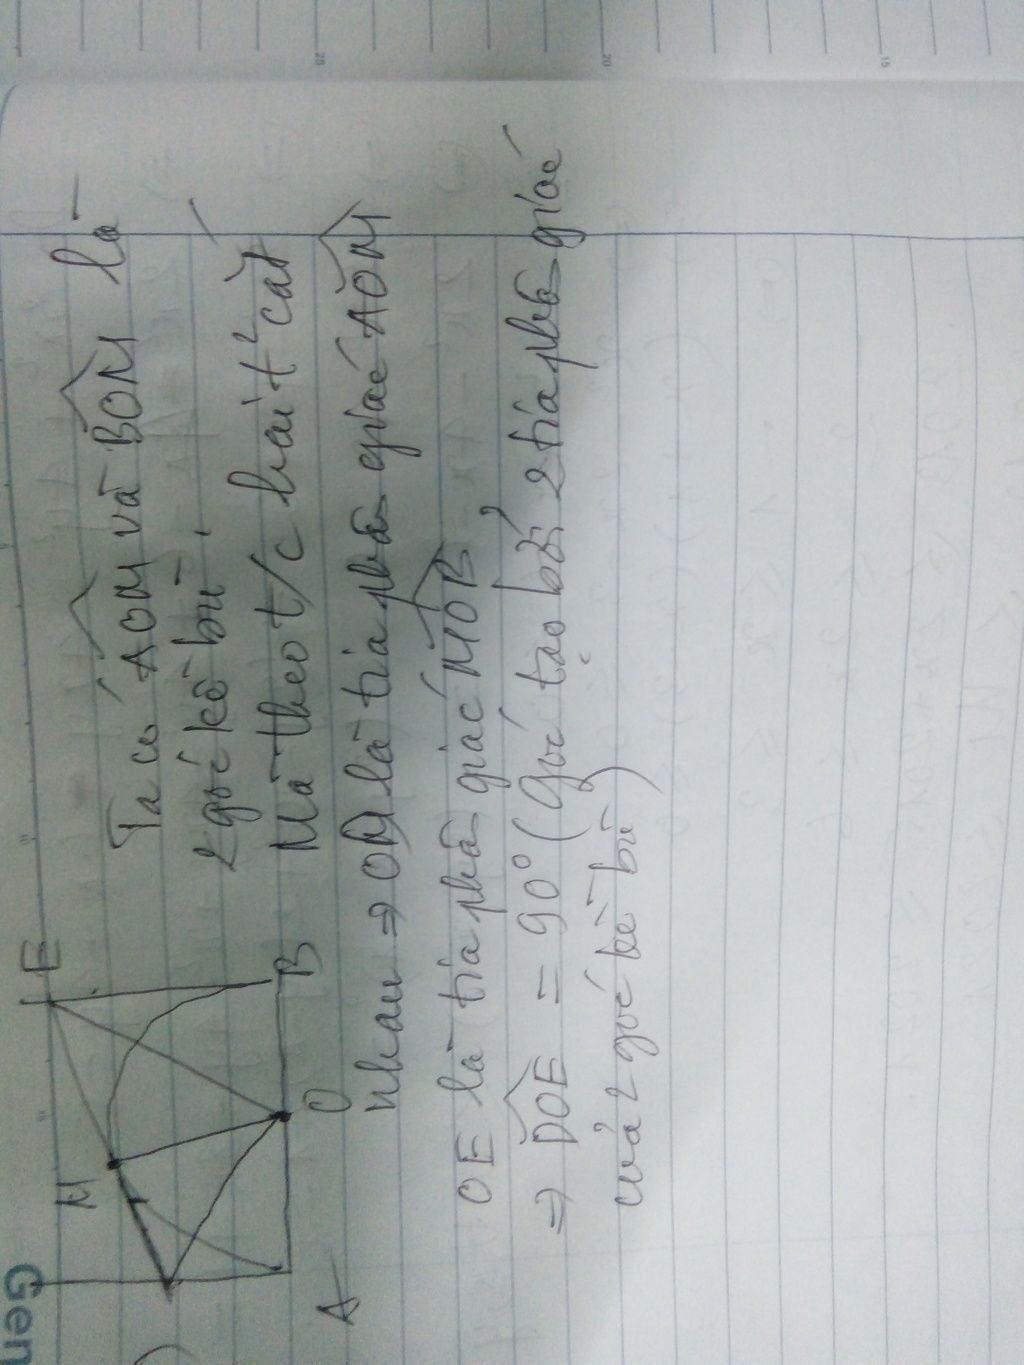 Gen
M
E
A
O
B
Ta có AOM và BOM là
2 góc kề bù.
Mà theo t/c hai t² cắt
nhau => OM là tia phân giác AOM
OE là tia phân giác MOB
=> DOE = 90° (góc tạo bởi 2 tia phân giác
của 2 góc kề bù)
20
20
15